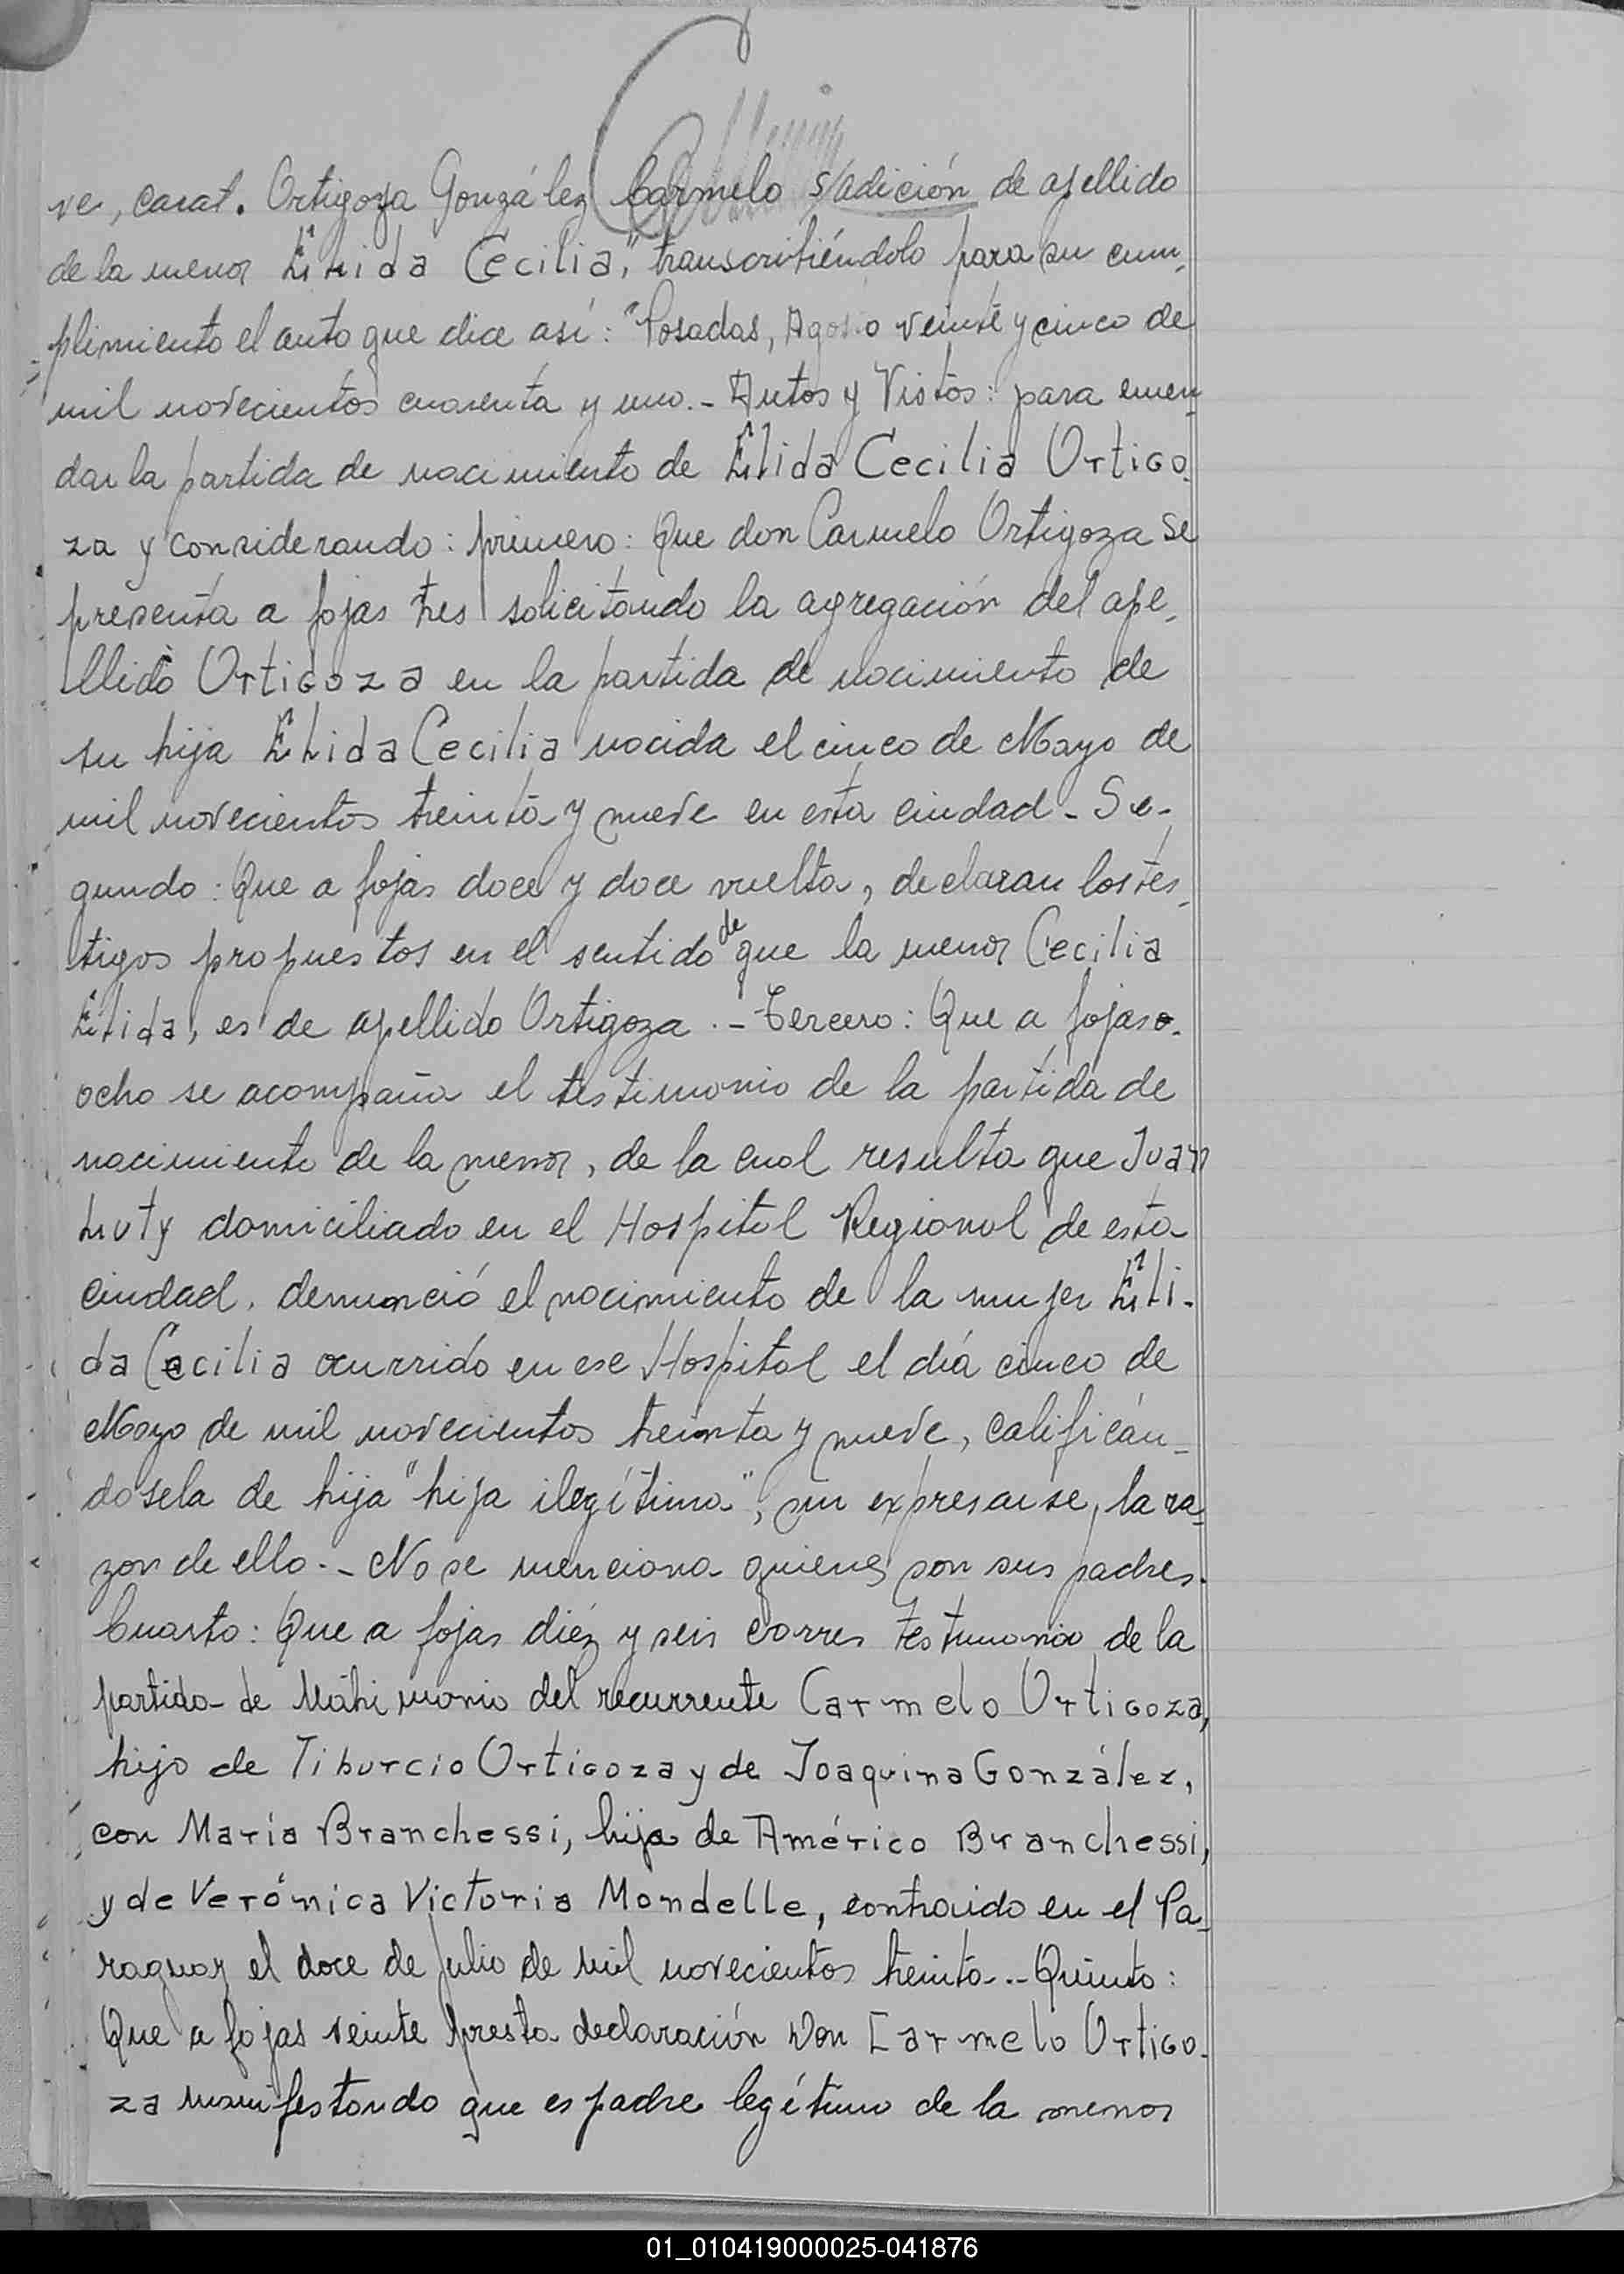 ve, carat. Ortigoza González Carmelo s/adición de apellido
de la menor Élida Cecilia", transcribiéndolo para su cum-
plimiento el auto que dice así: "Posadas, Agosto veinte y cinco de
mil novecientos cuarenta y uno.- Autos y Vistos: para enmen-
dar la partida de nacimiento de Élida Cecilia Ortigo-
za y considerando: primero: Que don Carmelo Ortigoza se
presenta a fojas tres solicitando la agregación del ape-
llido Ortigoza en la partida de nacimiento de
su hija Élida Cecilia nacida el cinco de Mayo de
mil novecientos treinta y nueve en esta ciudad - Se-
gundo: Que a fojas doce y doce vuelta, declaran los tes-
tigos propuestos en el sentido de que la menor Cecilia
Élida, es de apellido Ortigoza .- Tercero: Que a fojas o-
ocho se acompaña el testimonio de la partida de
nacimiento de la menor, de la cual resulta que Juan
Luty domiciliado en el Hospital Regional de esta
ciudad, denunció el nacimiento de la mujer Éli-
da Cecilia ocurrido en ese Hospital el día cinco de
Mayo de mil novecientos treinta y nueve, calificán-
dosela de hija "hija ilegítima", sin expresarse, la ra-
zon de ello.- No se menciona quienes son sus padres.
Cuarto: Que a fojas diéz y seis corres testimonio de la
partida de Matrimonio del recurrente Carmelo Ortigoza,
hijo de Tiburcio Ortigoza y de Joaquina González,
con María Branchessi, hija de Américo Branchessi,
y de Verónica Victoria Mondelle, contraido en el Pa-
raguay el doce de julio de mil novecientos treinta.- Quinto:
Que a fojas veinte presta declaración Don Carmelo Ortigo-
za manifestando que es padre legítimo de la menor
01_010419000025-041876